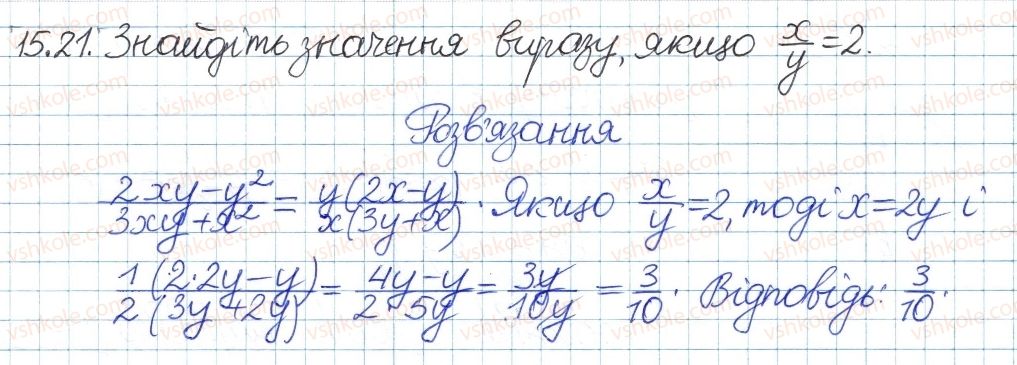 15.21. Знайдіть значення виразу, якщо x/y = 2.
Розв'язання
(2xy - y²)/(3xy + x²) = y(2x - y)/x(3y + x). Якщо x/y = 2, тоді x = 2y і
1(2·2y - y)/2(3y + 2y) = (4y - y)/(2·5y) = 3y/10y = 3/10. Відповідь: 3/10.